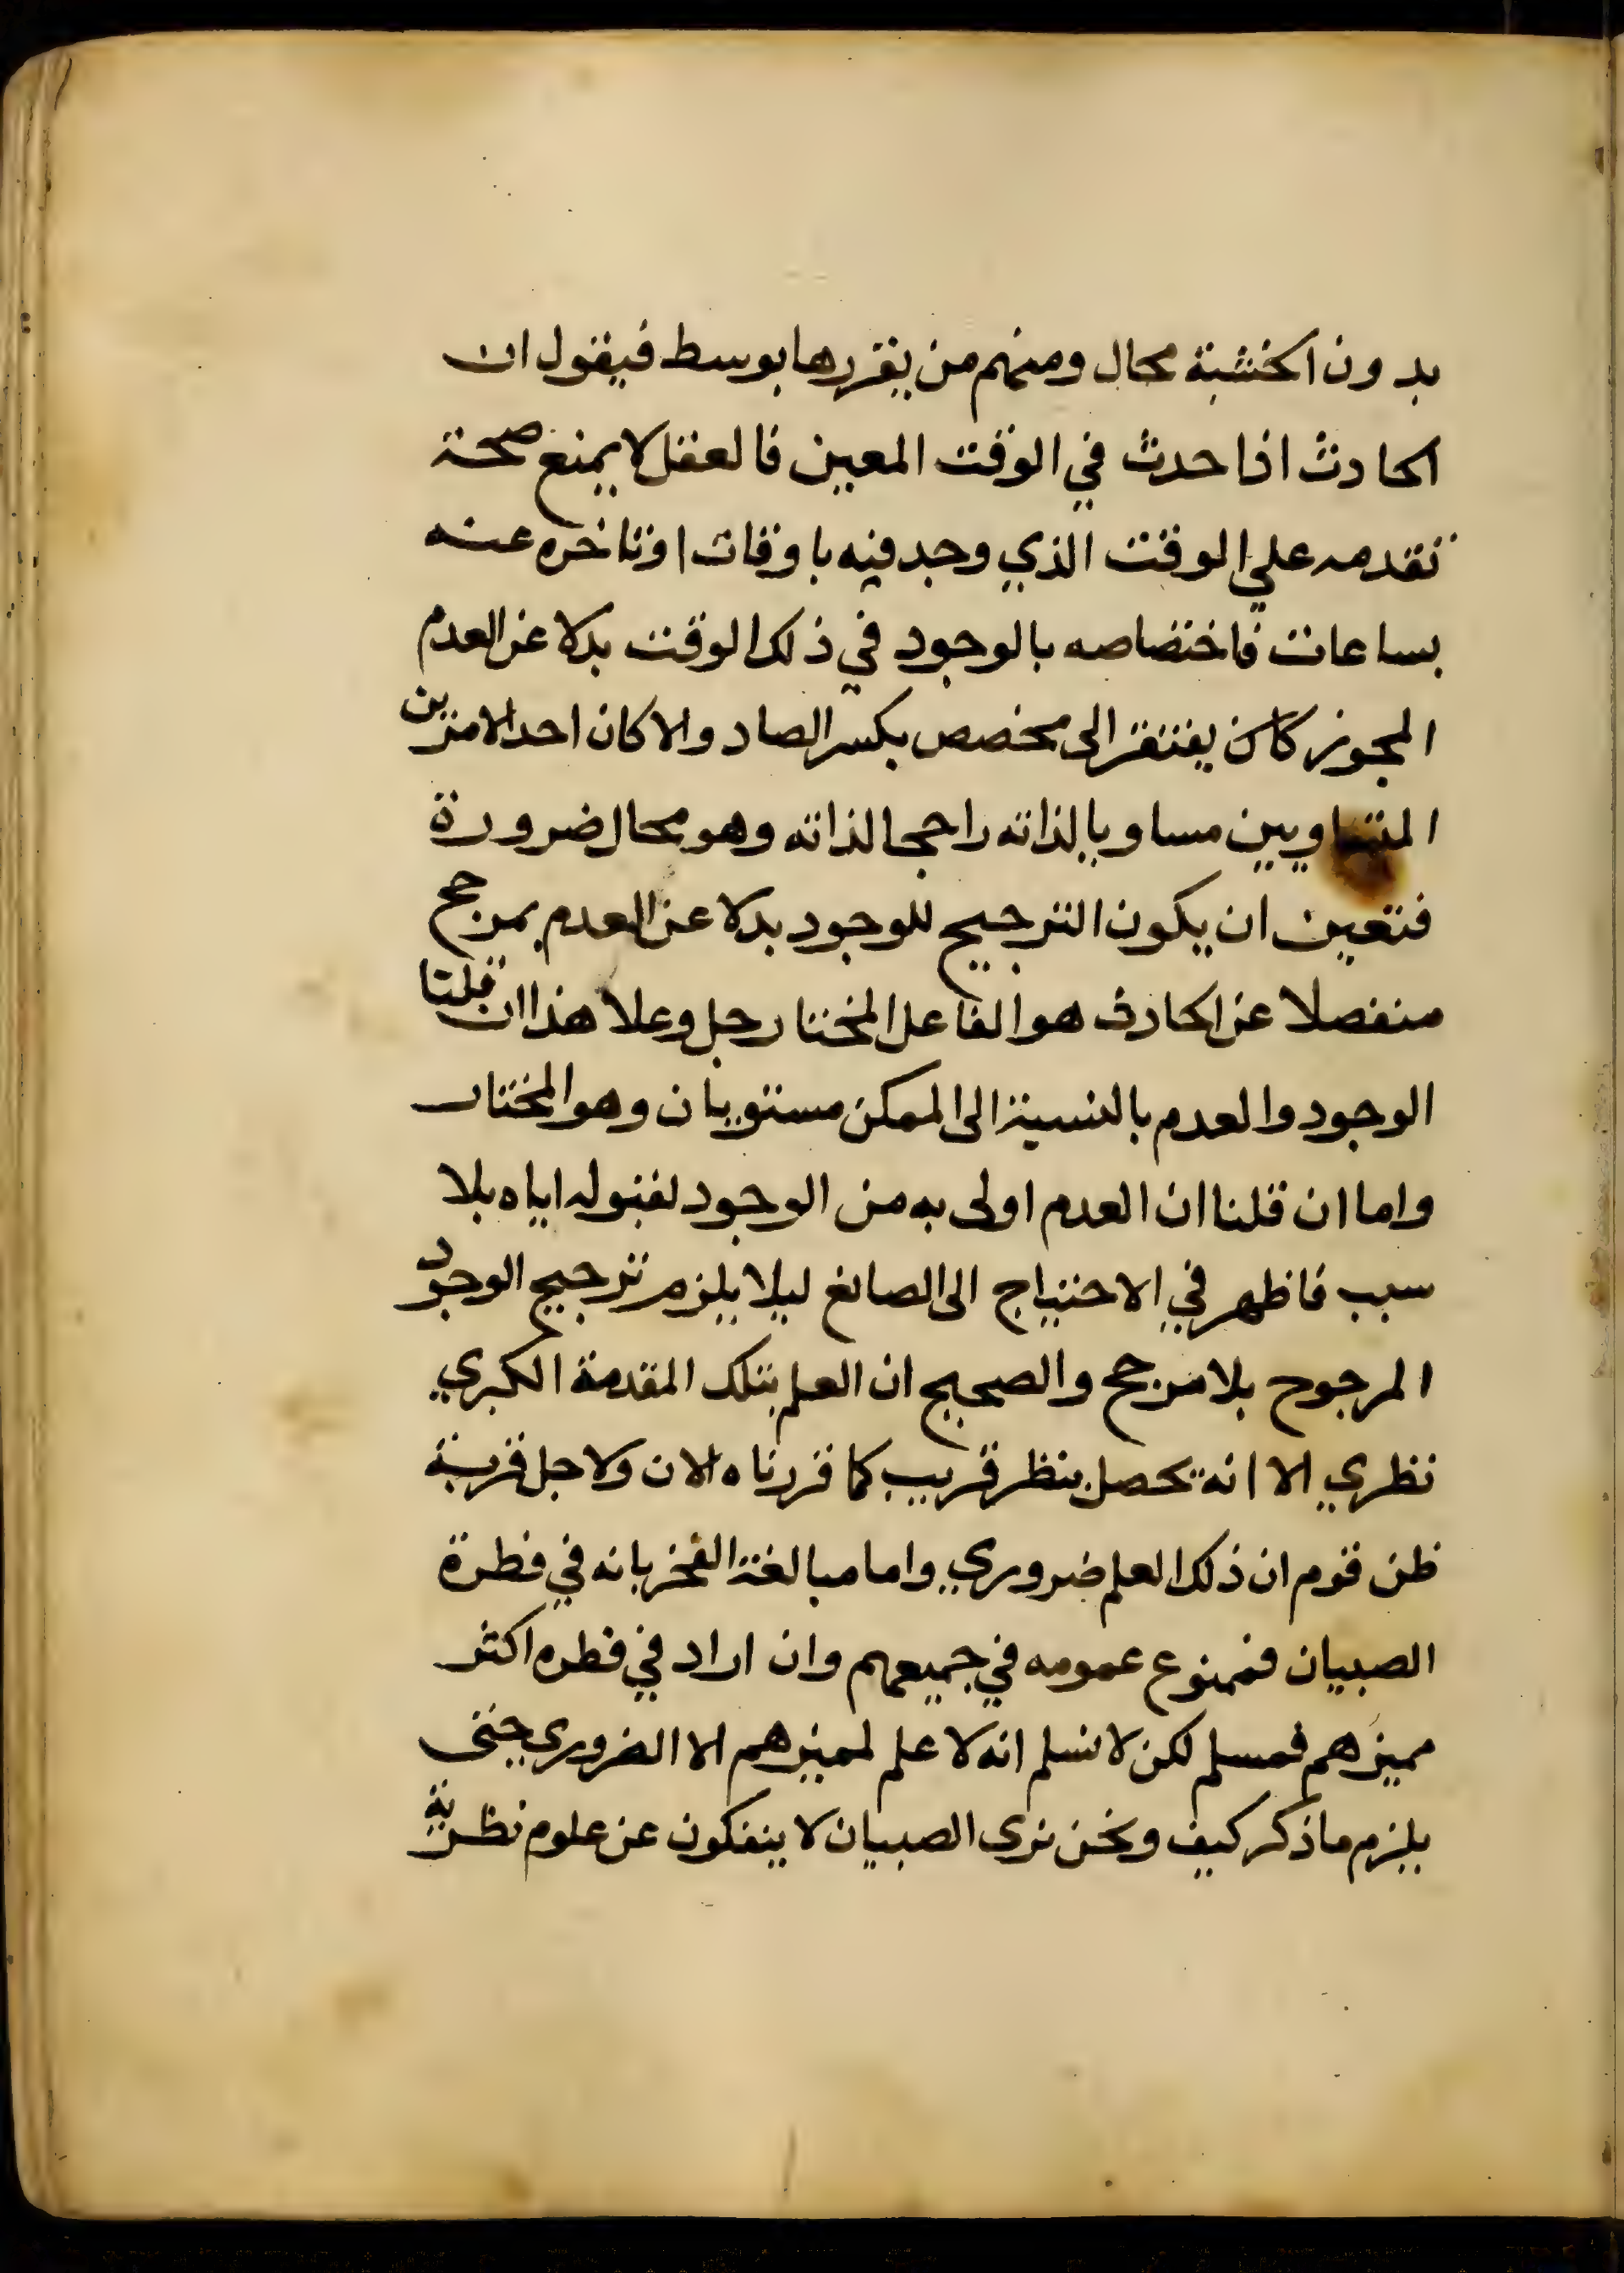 بدون الخشبة محال ومنهم من يقررها بوسط فيقول ان
الحادث اذا حدث في الوقت المعين فالعقل لا يمنع صحة
تقدمه علي الوقت الذي وجد فيه باوقات او تاخره عنه
بساعات فاختصاصه بالوجود في ذلك الوقت بدلا عن العدم
المجوز كان يفتقر الى مخصص بكسر الصاد والا كان احد الامرين
المتساويين مساويا لذاته راجحا لذاته وهو محال ضرورة
فتعين ان يكون الترجيح للوجود بدلا عن العدم بمرجح
منفصلا عن الحادث هو الفاعل المختار جل وعلا هذا ان قلنا
الوجود والعدم بالنسبة الى الممكن مستويان وهو المختار
واما ان قلنا ان العدم اولى به من الوجود لقبوله اياه بلا
سبب فاظهر في الاحتياج الى الصانع ليلا يلزم ترجيح الوجود
المرجوح بلا مرجح والصحيح ان العلم بتلك المقدمة الكبري
نظري الا انه يحصل بنظر قريب كما قررناه الان ولاجل قربة
ظن قوم ان ذلك العلم ضروري واما مبالغة الفخر بانه في فطرة
الصبيان فممنوع عمومه في جميعهم وان اراد في فطره اكثر
مميزهم فمسلم لكن لا نسلم انه لا علم لمميزهم الا الضروري حتى
يلزم ما ذكر كيف ونحن نرى الصبيان لا ينفكون عن علوم نظرية